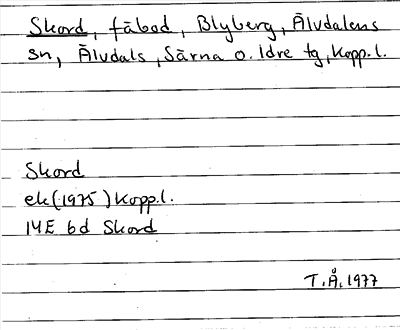 Skord, fäbod, Blyberg, Älvdalens
sn, Älvdals, Särna o. Idre tg, Kopp.l.
Skord
ek (1975) Kopp.l.
14E 6d Skord
T.Å. 1977